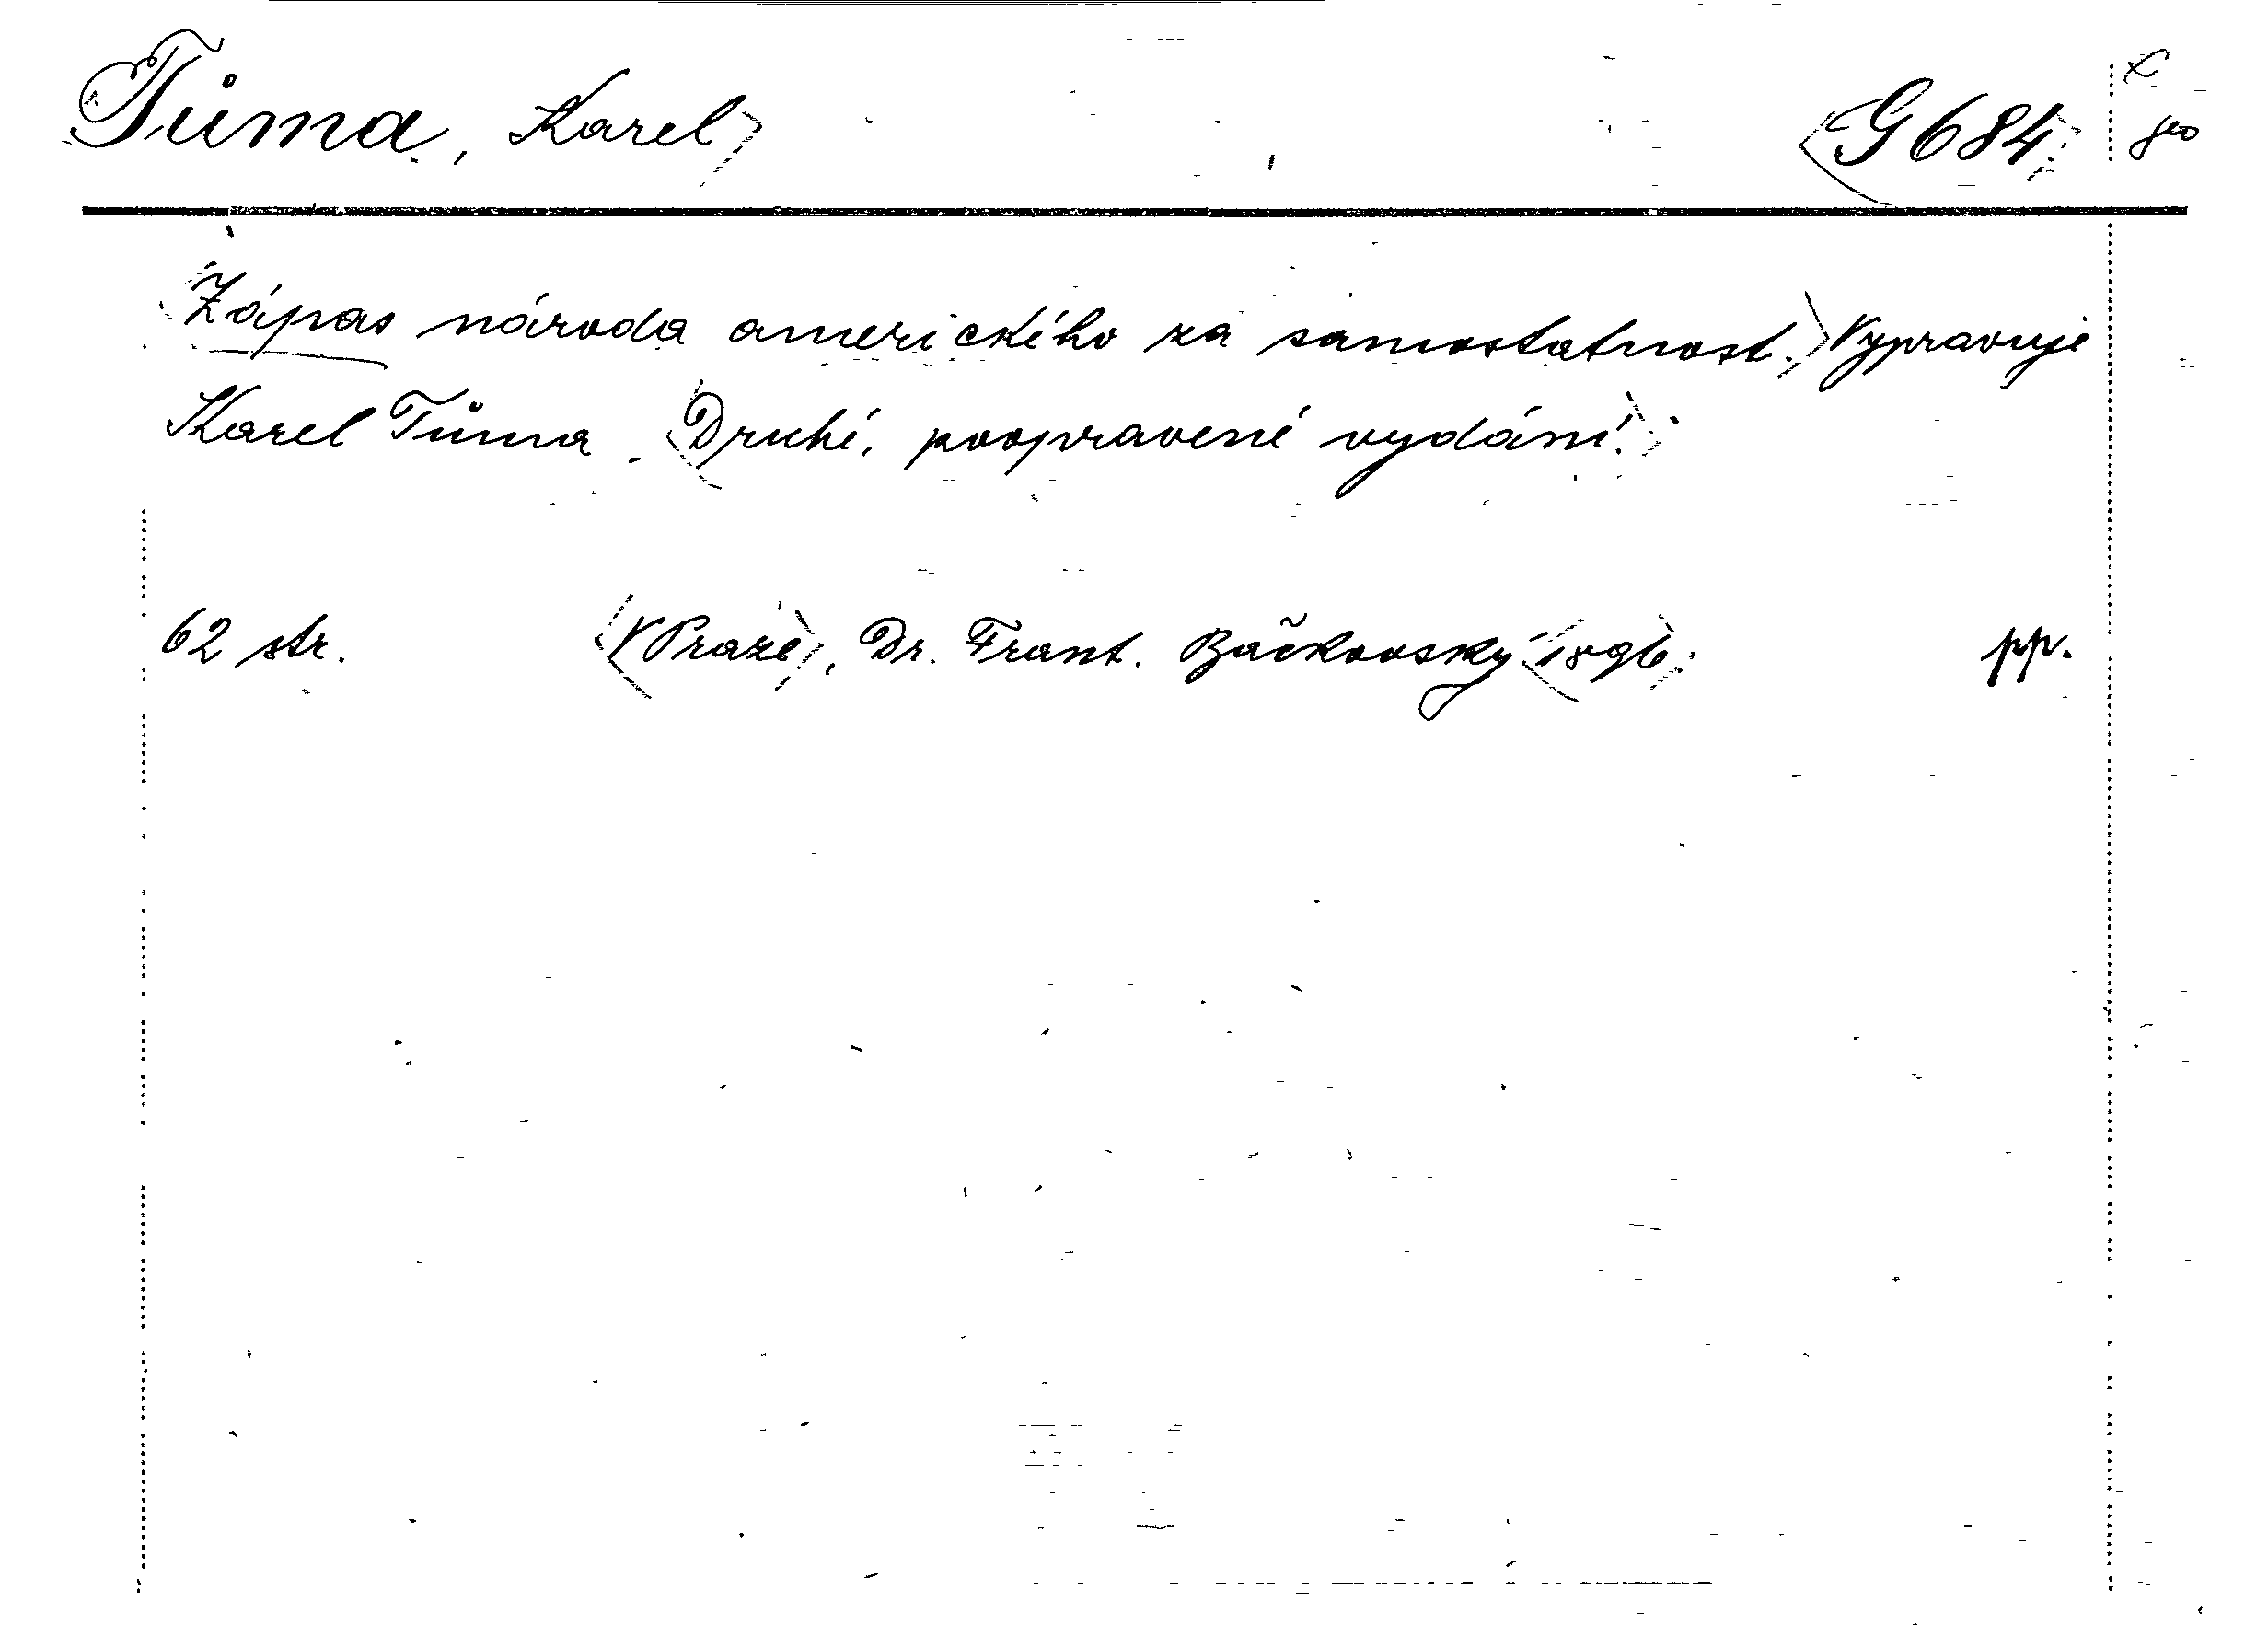 Tůma, Karel G 684
Zápas národa amerického za samostatnost. Vypravuje
Karel Tůma. Druhé, poopravené vydání.
62 str. V Praze, Dr. Frant. Bačkovský 1896. pp.